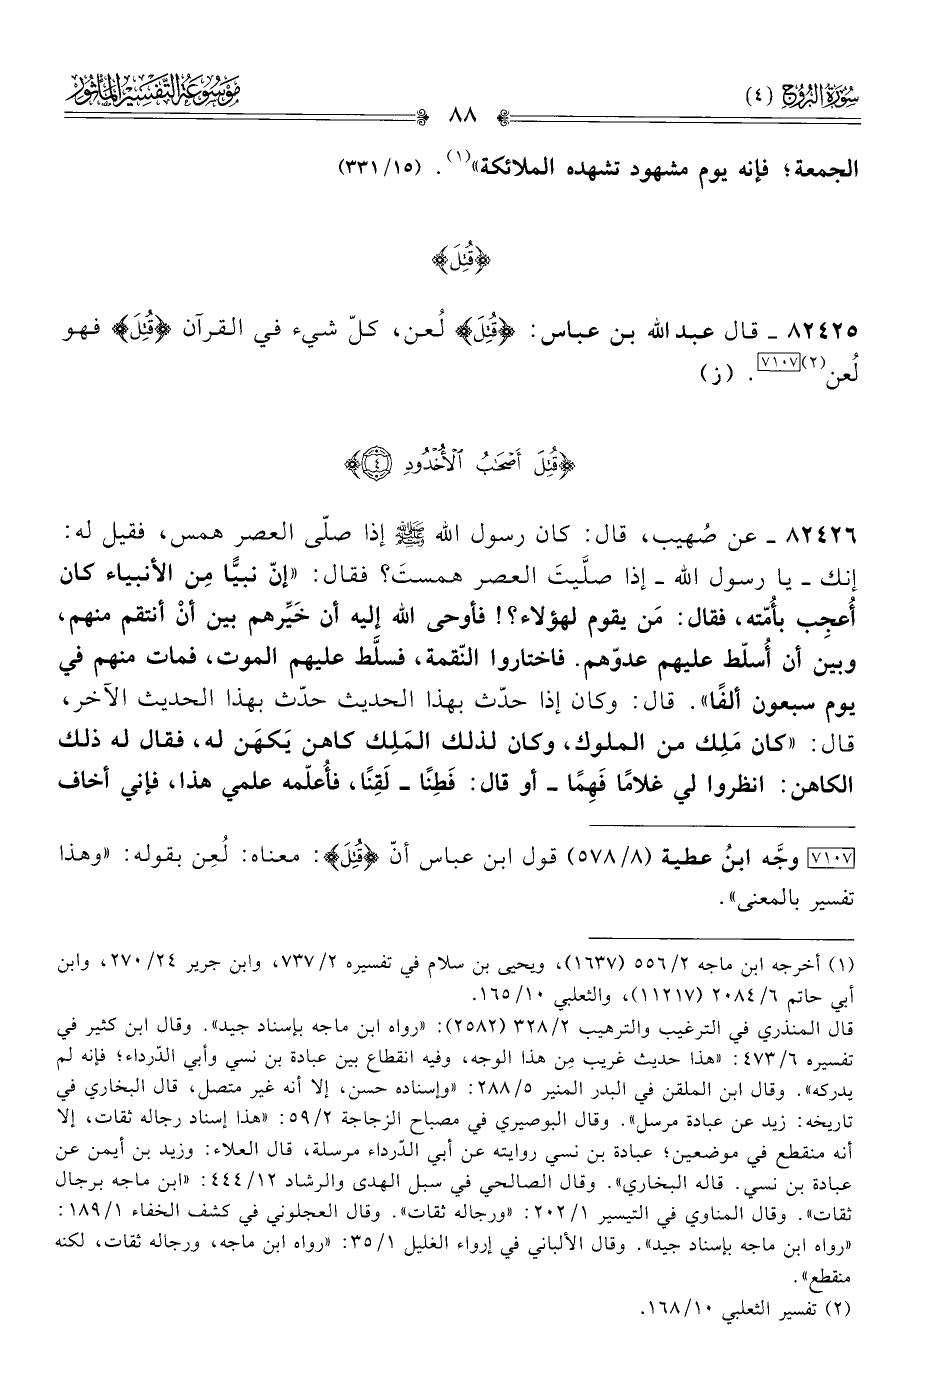 سورة البروج (٤)
٨٨
موسوعة التفسير المأثور
الجمعة؛ فإنه يوم مشهود تشهده الملائكة»(١). (٣٣١/١٥)
﴿قُتِلَ﴾
٨٢٤٢٥ ـ قال عبد الله بن عباس: ﴿قُتِلَ﴾ لُعن، كلّ شيء في القرآن ﴿قُتِلَ﴾ فهو
لُعن(٢)[٧١٠٧]. (ز)
﴿قُتِلَ أَصْحَٰبُ ٱلْأُخْدُودِ ٤﴾
٨٢٤٢٦ ـ عن صُهيب، قال: كان رسول الله ﷺ إذا صلّى العصر همس، فقيل له:
إنك ـ يا رسول الله ـ إذا صلَّيتَ العصر همستَ؟ فقال: «إنّ نبيًّا مِن الأنبياء كان
أُعجِب بأُمّته، فقال: مَن يقوم لهؤلاء؟! فأوحى الله إليه أن خَيِّرهم بين أنْ أنتقم منهم،
وبين أن أُسلّط عليهم عدوّهم. فاختاروا النّقمة، فسلَّط عليهم الموت، فمات منهم في
يوم سبعون ألفًا». قال: وكان إذا حدّث بهذا الحديث حدّث بهذا الحديث الآخر،
قال: «كان مَلِك من الملوك، وكان لذلك المَلِك كاهن يَكهَن له، فقال له ذلك
الكاهن: انظروا لي غلامًا فَهِمًا ـ أو قال: فَطِنًا ـ لَقِنًا، فأُعلّمه علمي هذا، فإني أخاف
[٧١٠٧] وجَّه ابنُ عطية (٥٧٨/٨) قول ابن عباس أنّ ﴿قُتِلَ﴾: معناه: لُعِن بقوله: «وهذا
تفسير بالمعنى».
(١) أخرجه ابن ماجه ٥٥٦/٢ (١٦٣٧)، ويحيى بن سلام في تفسيره ٧٣٧/٢، وابن جرير ٢٧٠/٢٤، وابن
أبي حاتم ٢٠٨٤/٦ (١١٢١٧)، والثعلبي ١٦٥/١٠.
قال المنذري في الترغيب والترهيب ٣٢٨/٢ (٢٥٨٢): «رواه ابن ماجه بإسناد جيد». وقال ابن كثير في
تفسيره ٤٧٣/٦: «هذا حديث غريب مِن هذا الوجه، وفيه انقطاع بين عبادة بن نسي وأبي الدّرداء؛ فإنه لم
يدركه». وقال ابن الملقن في البدر المنير ٢٨٨/٥: «وإسناده حسن، إلا أنه غير متصل، قال البخاري في
تاريخه: زيد عن عبادة مرسل». وقال البوصيري في مصباح الزجاجة ٥٩/٢: «هذا إسناد رجاله ثقات، إلا
أنه منقطع في موضعين؛ عبادة بن نسي روايته عن أبي الدّرداء مرسلة، قال العلاء: وزيد بن أيمن عن
عبادة بن نسي. قاله البخاري». وقال الصالحي في سبل الهدى والرشاد ٤٤٤/١٢: «ابن ماجه برجال
ثقات». وقال المناوي في التيسير ٢٠٢/١: «ورجاله ثقات». وقال العجلوني في كشف الخفاء ١٨٩/١:
«رواه ابن ماجه بإسناد جيد». وقال الألباني في إرواء الغليل ٣٥/١: «رواه ابن ماجه، ورجاله ثقات، لكنه
منقطع».
(٢) تفسير الثعلبي ١٦٨/١٠.